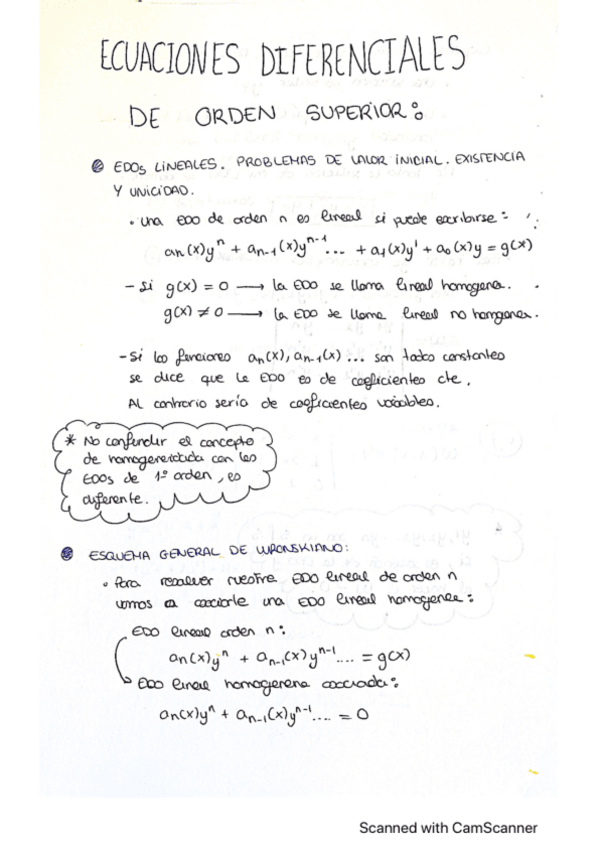 ECUACIONES DIFERENCIALES
DE ORDEN SUPERIOR:
EDOs LINEALES. PROBLEMAS DE VALOR INICIAL. EXISTENCIA
Y UNICIDAD.
• Una EDO de orden n es lineal si puede escribirse:
an(x)yⁿ + an-1(x)yⁿ⁻¹... + a1(x)y' + a0(x)y = g(x)
- Si g(x) = 0 → la EDO se llama lineal homogenea.
g(x) ≠ 0 → la EDO se llama lineal no homogenea.
- Si las funciones an(x), an-1(x)... son todas constantes
se dice que la EDO es de coeficientes cte.
Al contrario sería de coeficientes variables.
* No confundir el concepto
de homogeneidad con las
EDOs de 1º orden, es
diferente.
ESQUEMA GENERAL DE WRONSKIANO:
• Para resolver nuestra EDO lineal de orden n
vamos a asociarle una EDO lineal homogenea:
EDO lineal orden n:
an(x)yⁿ + an-1(x)yⁿ⁻¹.... = g(x)
EDO lineal homogenea asociada:
an(x)yⁿ + an-1(x)yⁿ⁻¹.... = 0
Scanned with CamScanner